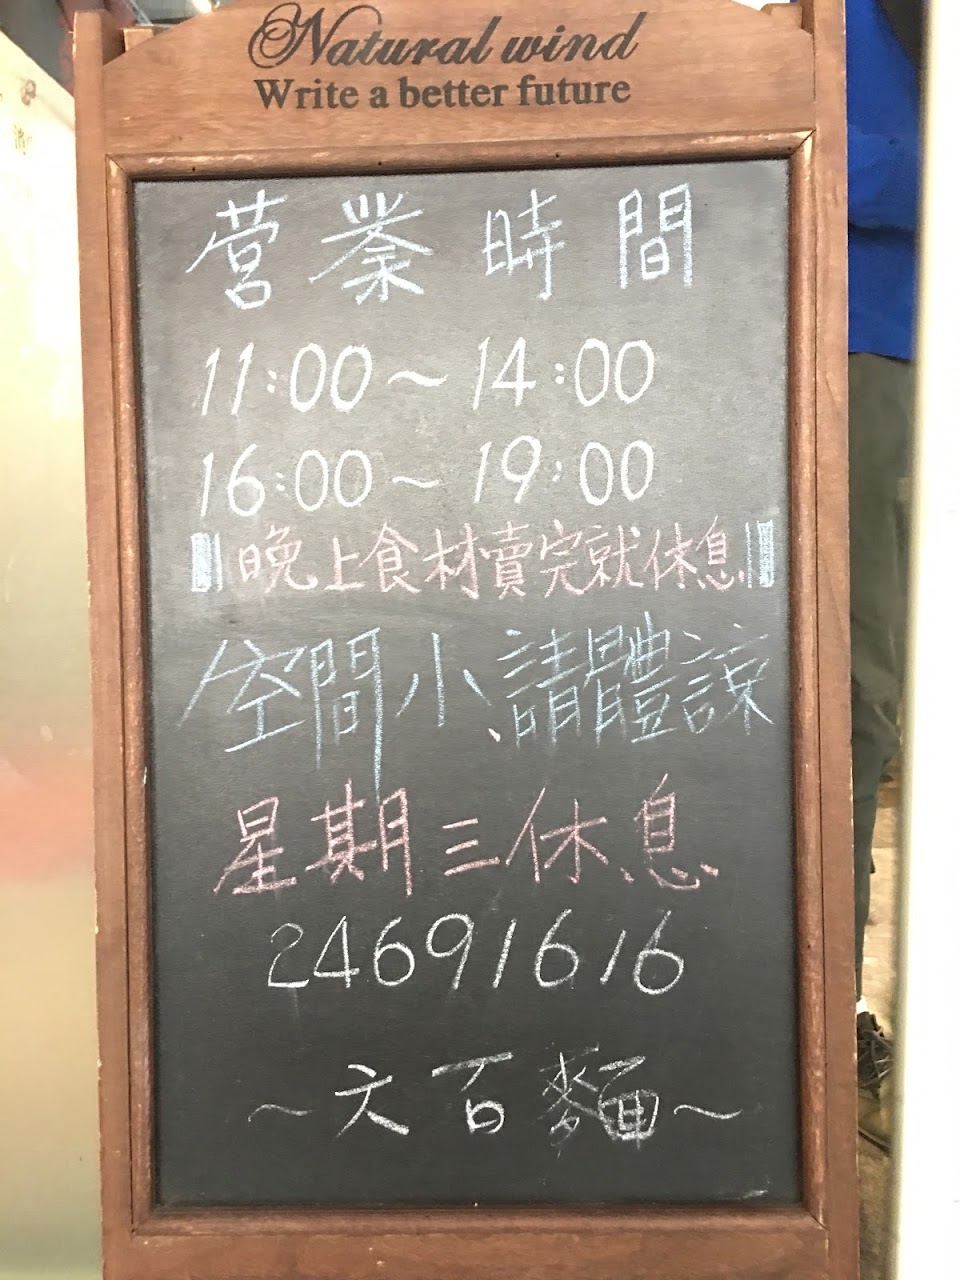 Natural wind
Write a better future
营業時間
11:00～14:00
16:00～19:00
晚上食材賣完就休息
空間小、請體諒
星期三休息
24691616
～六百麵～